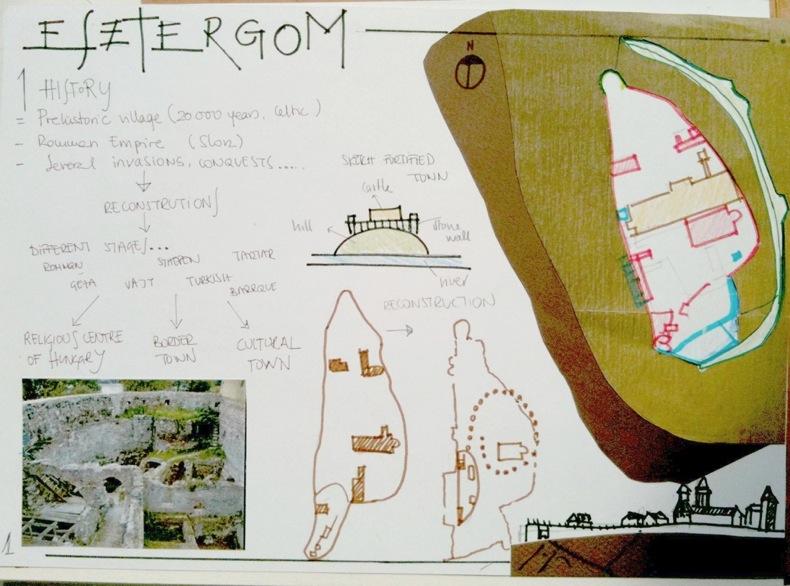 ESZTERGOM
1 HISTORY
= Prehistoric village (20 000 years, Celtic)
- Rommen Empire (Slok)
- Several invasions, CONQUESTS.....
RECONSTRUTIONS
DIFFERENT STAGES...
ROHMEN STEPEN TARTAR
GEZA VAJT TURKISH BARROUE
RELIGIOUS CENTRE
OF HUNGARY
BORDER
TOWN
CULTURAL
TOWN
SKETCH FORTIFIED
TOWN
castle
hill
stone
wall
river
RECONSTRUCTION
N
1